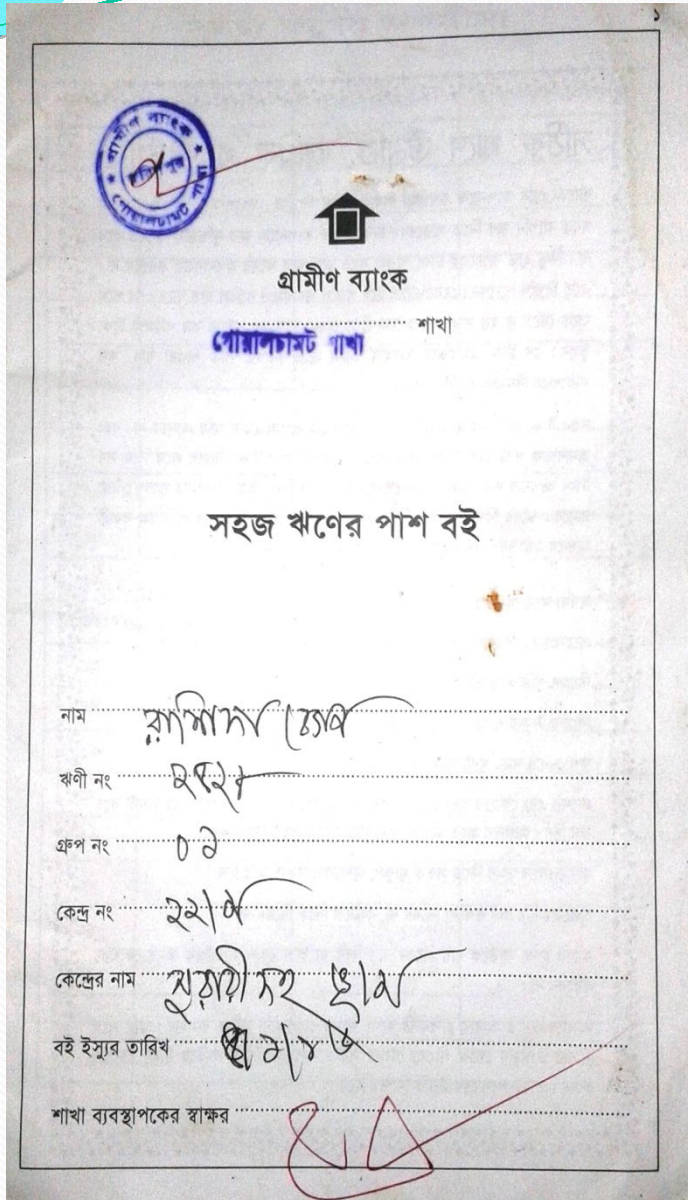 ১
গ্রামীণ ব্যাংক
গোয়ালচামট শাখা
গ্রামীণ ব্যাংক
শাখা
গোয়ালচামট শাখা
সহজ ঋণের পাশ বই
নাম রাশিদা বেগম
ঋণী নং
গ্রুপ নং ০১
কেন্দ্র নং ২২/ম
কেন্দ্রের নাম
বই ইস্যুর তারিখ
শাখা ব্যবস্থাপকের স্বাক্ষর